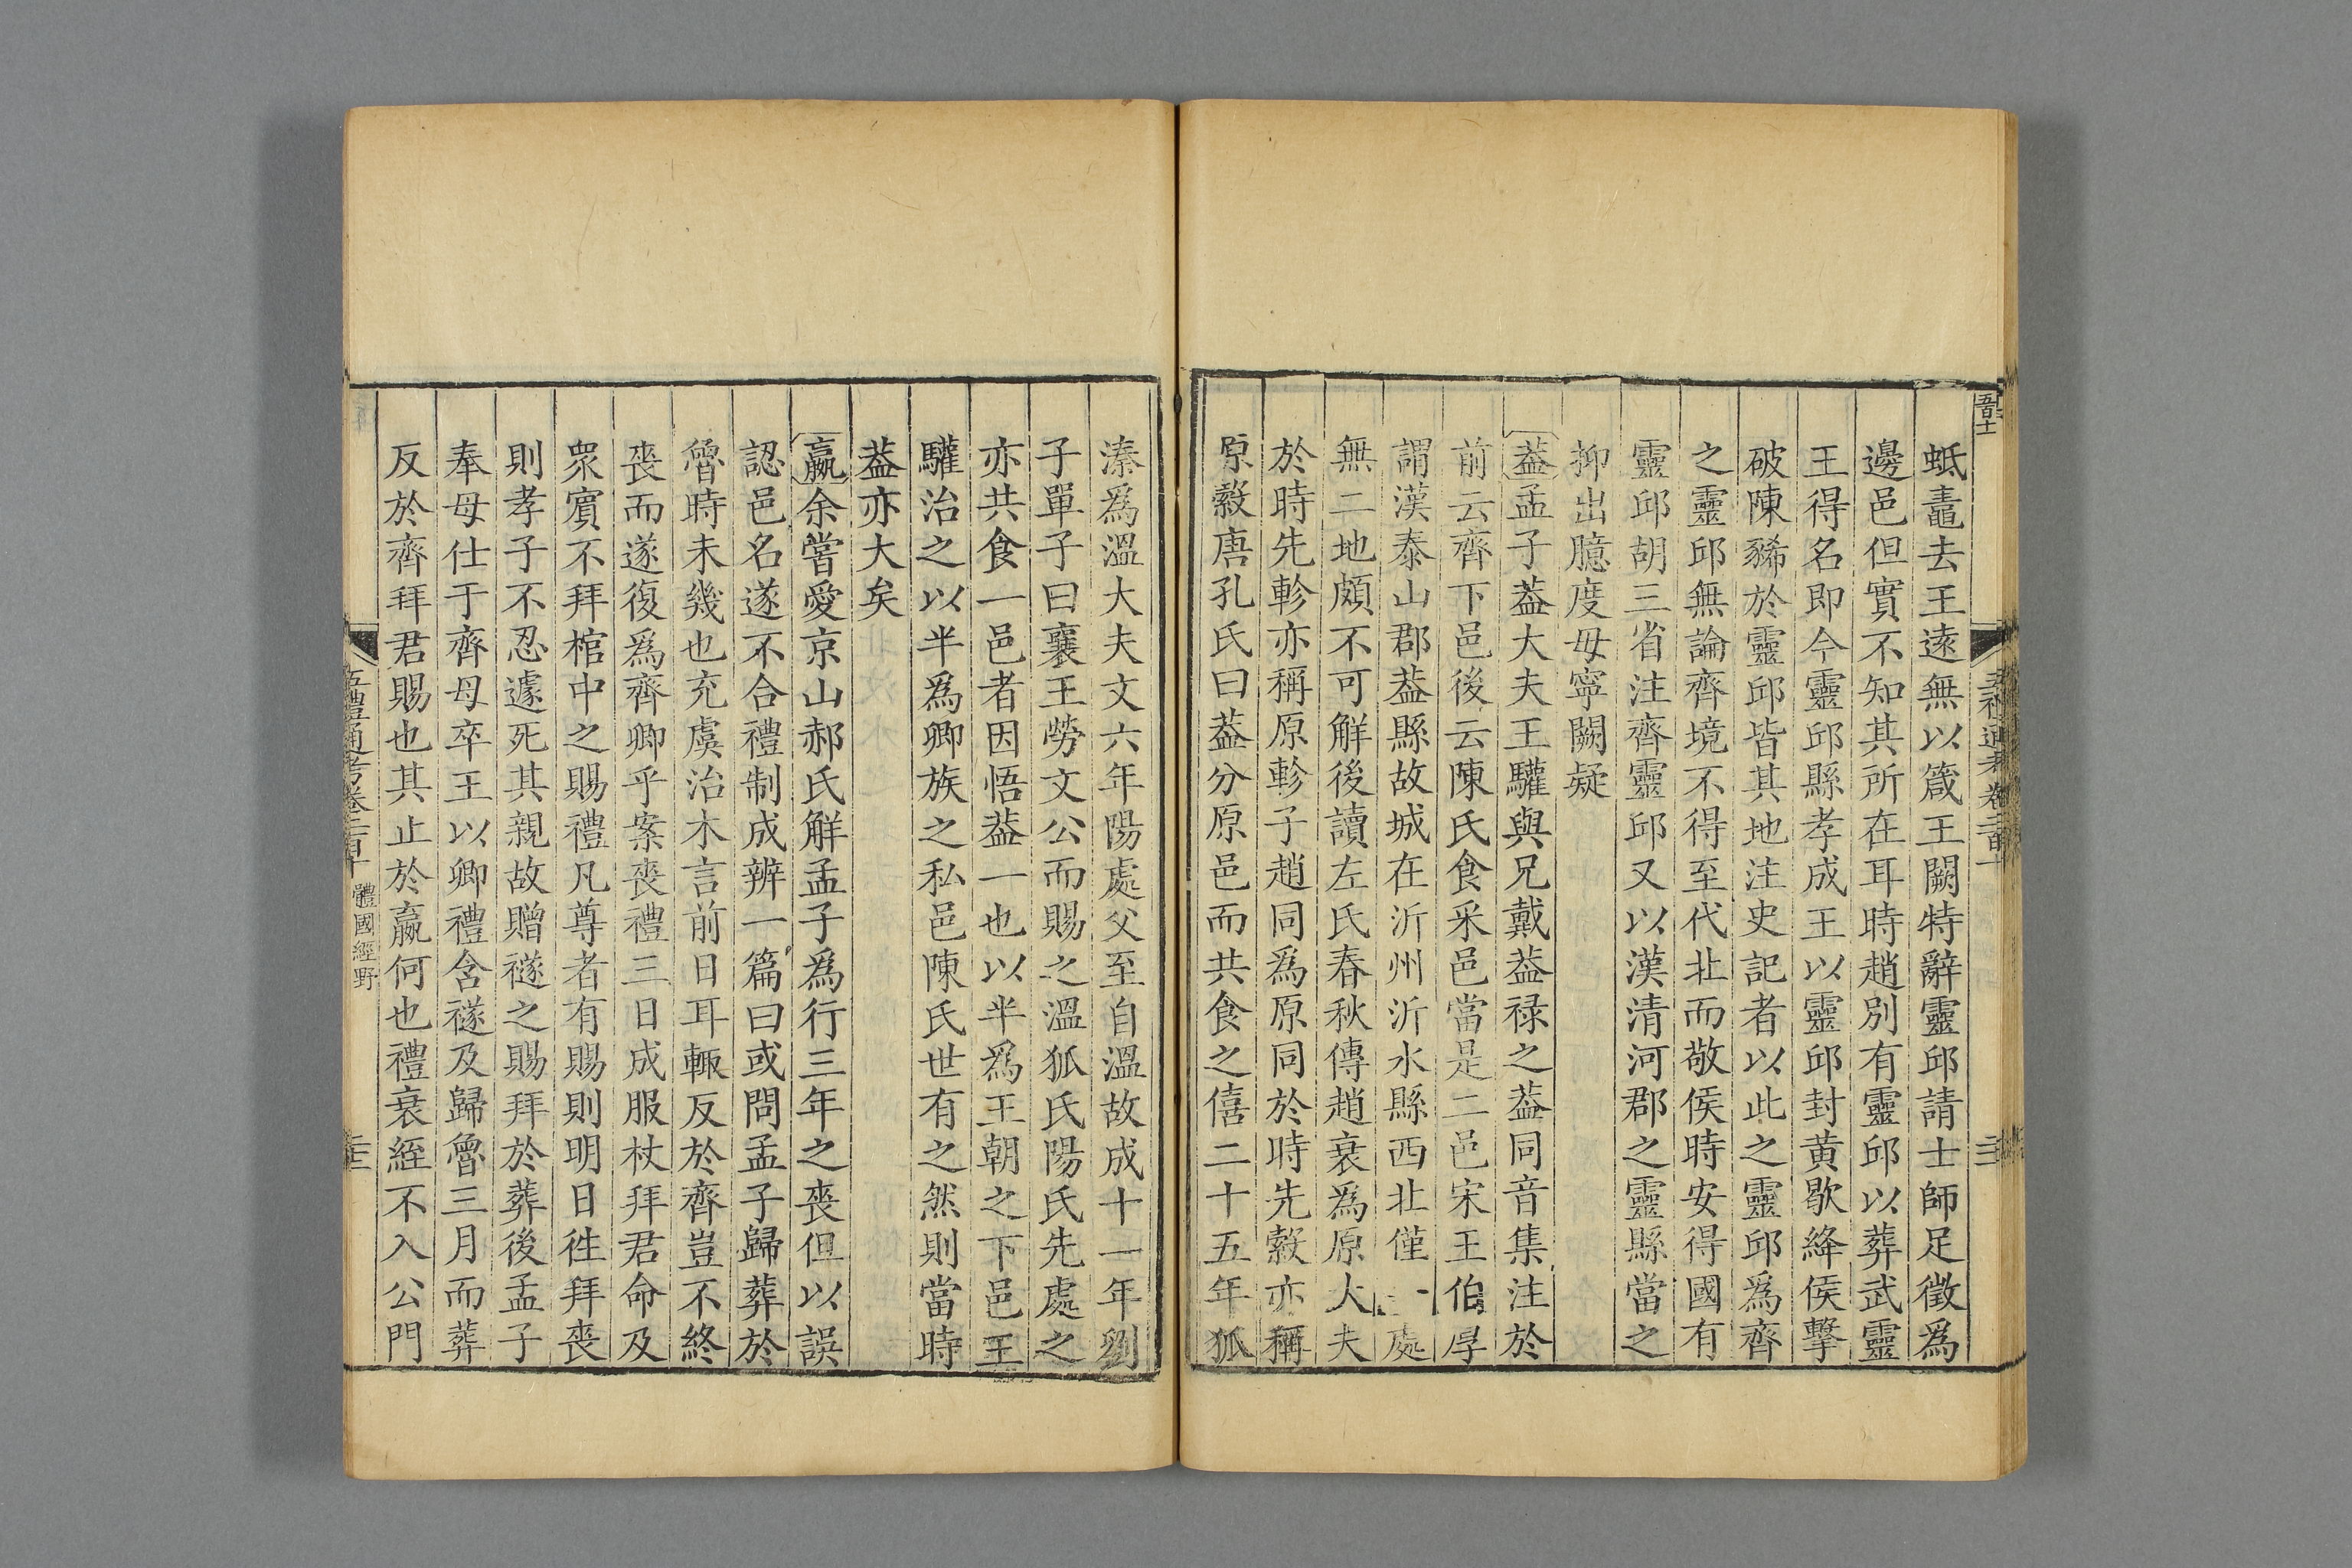 蚳鼃去王逺無以箴王闕特辭靈邱請士師足徵爲
邊邑但實不知其所在耳時趙別有靈邱以葬武靈
王得名即今靈邱縣孝成王以靈邱封黄歇絳侯擊
破陳豨於靈邱皆其地注史記者以此之靈邱爲齊
之靈邱無論齊境不得至代北而敬侯時安得國有
靈邱胡三省注齊靈邱又以漢清河郡之靈縣當之
抑出臆度毋寧闕疑
葢孟子葢大夫王驩與兄戴葢禄之葢同音集注於
前云齊下邑後云陳氏食采邑當是二邑宋王伯厚
謂漢泰山郡葢縣故城在沂州沂水縣西北僅一處
無二地頗不可解後讀左氏春秋傳趙衰爲原大夫
於時先軫亦稱原軫子趙同爲原同於時先縠亦稱
原縠唐孔氏曰葢分原邑而共食之僖二十五年狐
溱爲溫大夫文六年陽處父至自溫故成十一年劉
子單子曰襄王勞文公而賜之溫狐氏陽氏先處之
亦共食一邑者因悟葢一也以半爲王朝之下邑王
驩治之以半爲卿族之私邑陳氏世有之然則當時
葢亦大矣
嬴余嘗愛京山郝氏解孟子爲行三年之喪但以誤
認邑名遂不合禮制成辨一篇曰或問孟子歸葬於
魯時未幾也充虞治木言前日耳輒反於齊豈不終
喪而遂復爲齊卿乎案喪禮三日成服杖拜君命及
衆賓不拜棺中之賜禮凡尊者有賜則明日徃拜喪
則孝子不忍遽死其親故贈襚之賜拜於葬後孟子
奉母仕于齊母卒王以卿禮含襚及歸魯三月而葬
反於齊拜君賜也其止於嬴何也禮衰絰不入公門
五禮通考卷二百十
體國經野